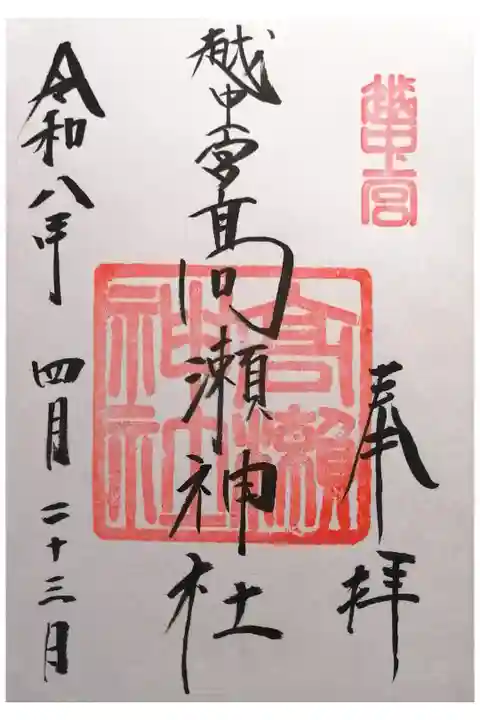 越中一宮
奉拝
越中一宮高瀬神社
高瀬神社
令和八年 四月二十三日